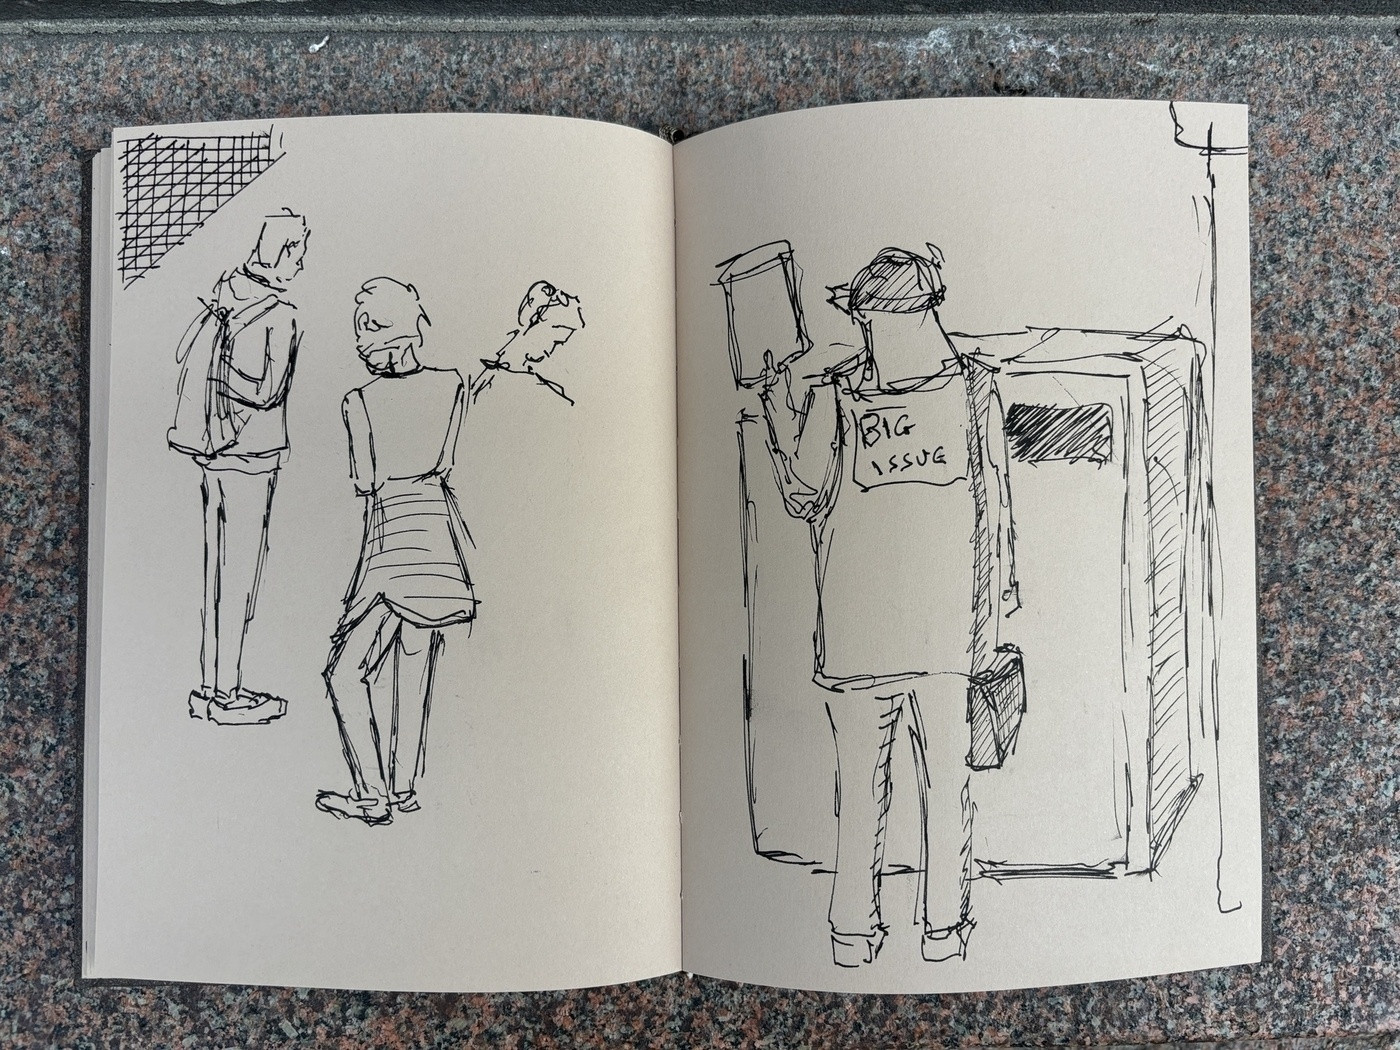 BIG
ISSUE